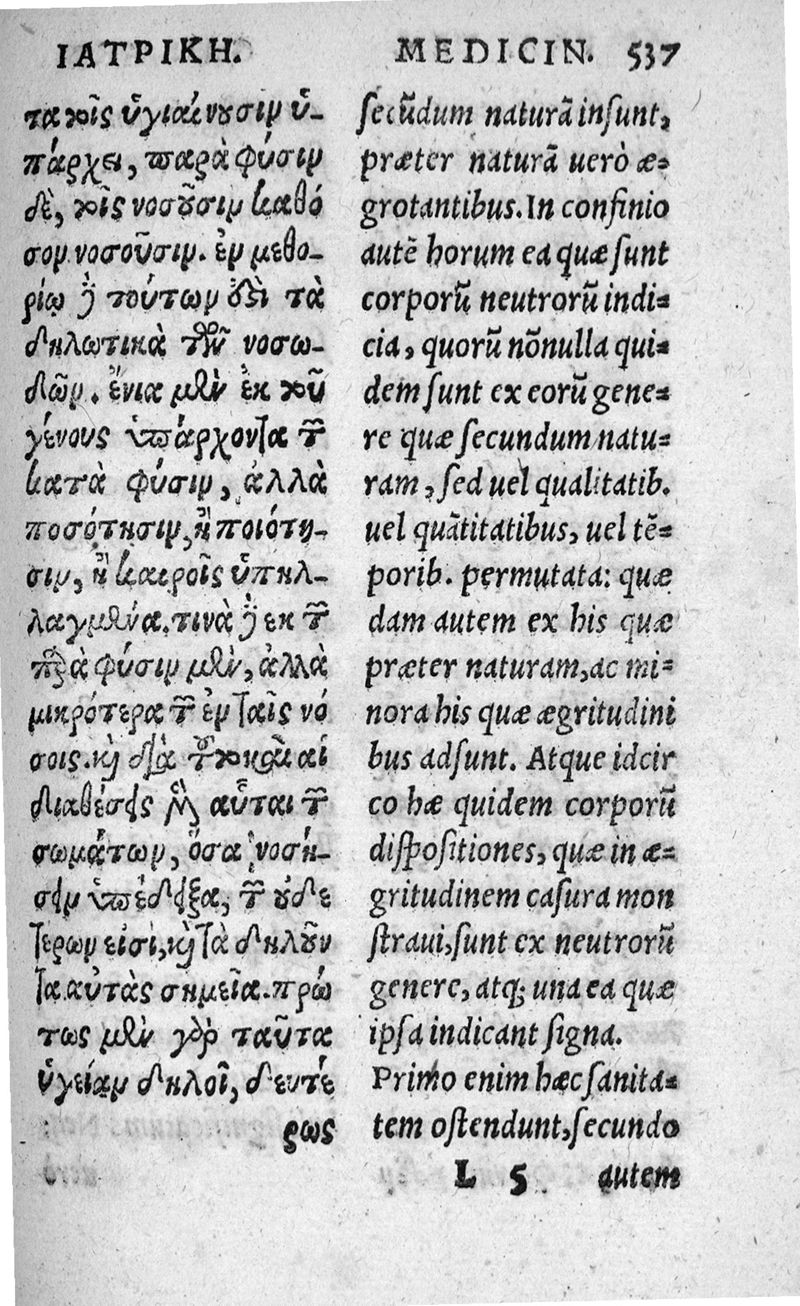 ΙΑΤΡΙΚΗ.
τα τοῖς ὑγιαίνουσιν ὑ-
πάρχει, παρὰ φύσιν
δὲ, τοῖς νοσοῦσιν καθό
σον νοσοῦσιν. ἐν μεθο-
ρίῳ δὲ τούτων ἐστὶ τὰ
δηλωτικὰ τῶν νοσω-
δῶν. ἔνια μὲν ἐκ τοῦ
γένους ὑπάρχοντα τῶν
κατὰ φύσιν, ἀλλὰ
ποσότησιν, ἢ ποιότη-
σιν, ἢ καιροῖς ὑπηλ-
λαγμένα. τινὰ δὲ ἐκ τῶν
παρὰ φύσιν μὲν, ἀλλὰ
μικρότερα τῶν ἐν ταῖς νό
σοις. καὶ διὰ τοῦτο καὶ αἱ
διαθέσεις μὲν αὗται τῶν
σωμάτων, ὅσα νοσή-
σειν ὑπέδειξα, τῶν οὐδε
τέρων εἰσὶ, καὶ τὰ δηλοῦν
τα αὐτὰς σημεῖα. πρώ
τως μὲν γὰρ ταῦτα
ὑγείαν δηλοῖ, δευτέ
ρως
MEDICIN. 537
secũdum naturã insunt,
præter naturã uerò æ-
grotantibus. In confinio
autẽ horum ea quæ sunt
corporũ neutrorũ indi-
cia, quorũ nõnulla qui-
dem sunt ex eorũ gene-
re quæ secundum natu-
ram, sed uel qualitatib.
uel quãtitatibus, uel tẽ-
porib. permutata: quæ
dam autem ex his quæ
præter naturam, ac mi-
nora his quæ ægritudini
bus adsunt. Atque idcir
co hæ quidem corporũ
dispositiones, quæ in æ-
gritudinem casura mon
straui, sunt ex neutrorũ
genere, atq; una ea quæ
ipsa indicant signa.
Primo enim hæc sanita-
tem ostendunt, secundo
L 5 autem